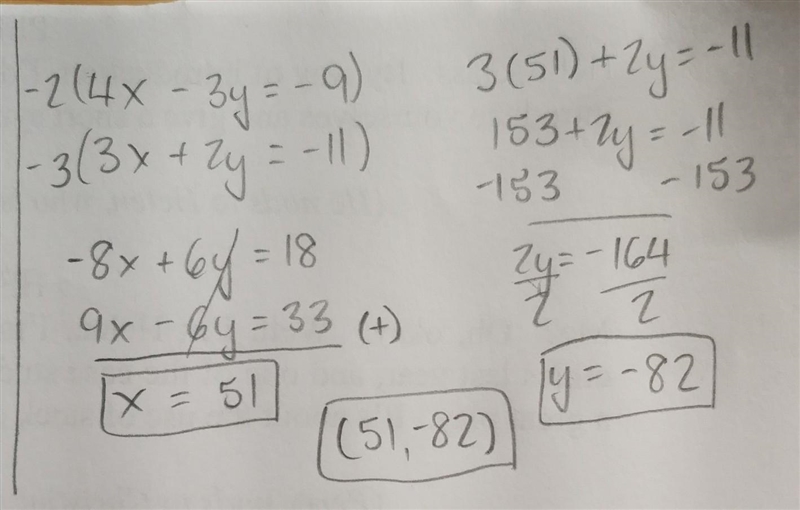 -2(4x - 3y = -9)
-3(3x + 2y = -11)
-8x + 6y = 18
9x - 6y = 33 (+)
x = 51
3(51) + 2y = -11
153 + 2y = -11
-153 -153
2y = -164
2 2
y = -82
(51, -82)